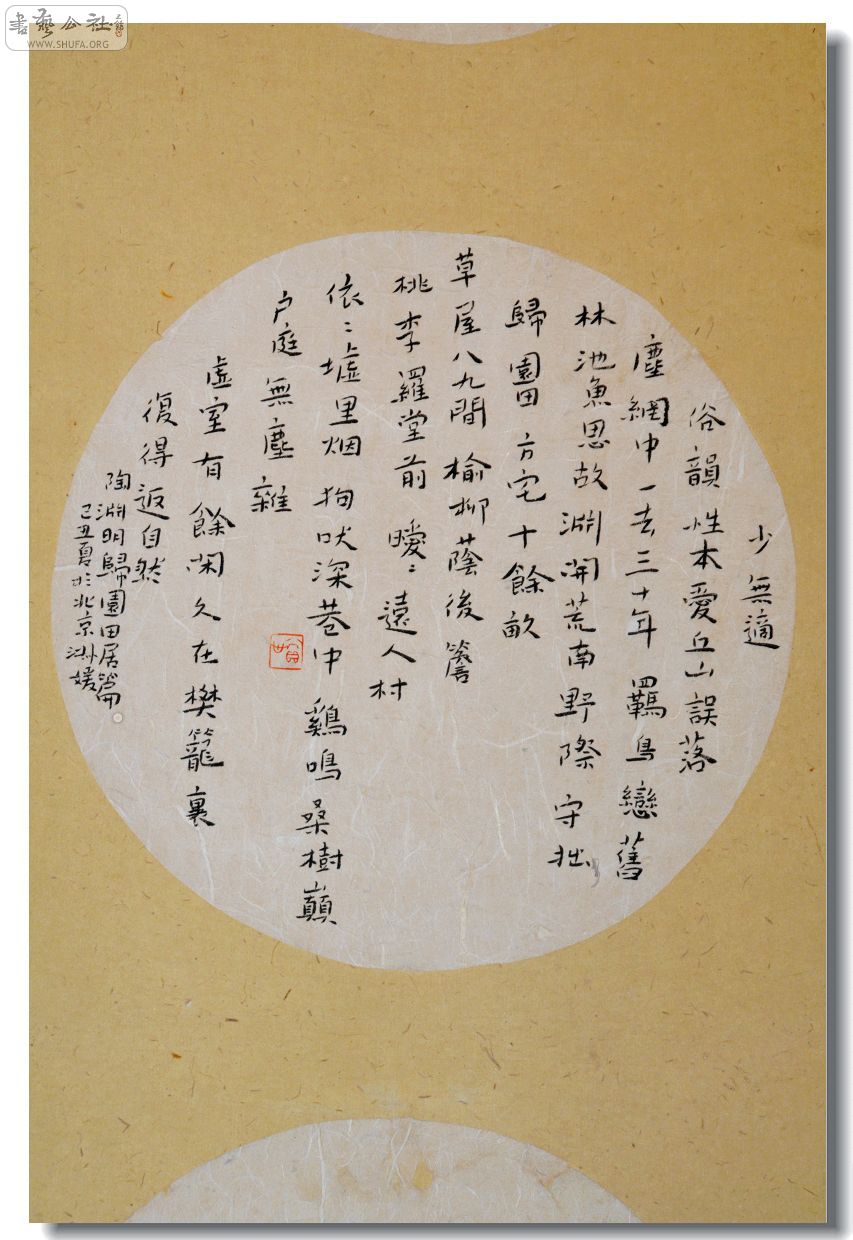 少無適
俗韻性本愛丘山誤落
塵網中一去三十年羈鳥戀舊
林池魚思故淵開荒南野際守拙
歸園田方宅十餘畝
草屋八九間榆柳蔭後簷
桃李羅堂前曖〻遠人村
依〻墟里烟狗吠深巷中鷄鳴桑樹巔
户庭無塵雜
虛室有餘閑久在樊籠裏
復得返自然
陶淵明歸園田居篇
己丑夏於北京淑媛
書藝公社
WWW.SHUFA.ORG